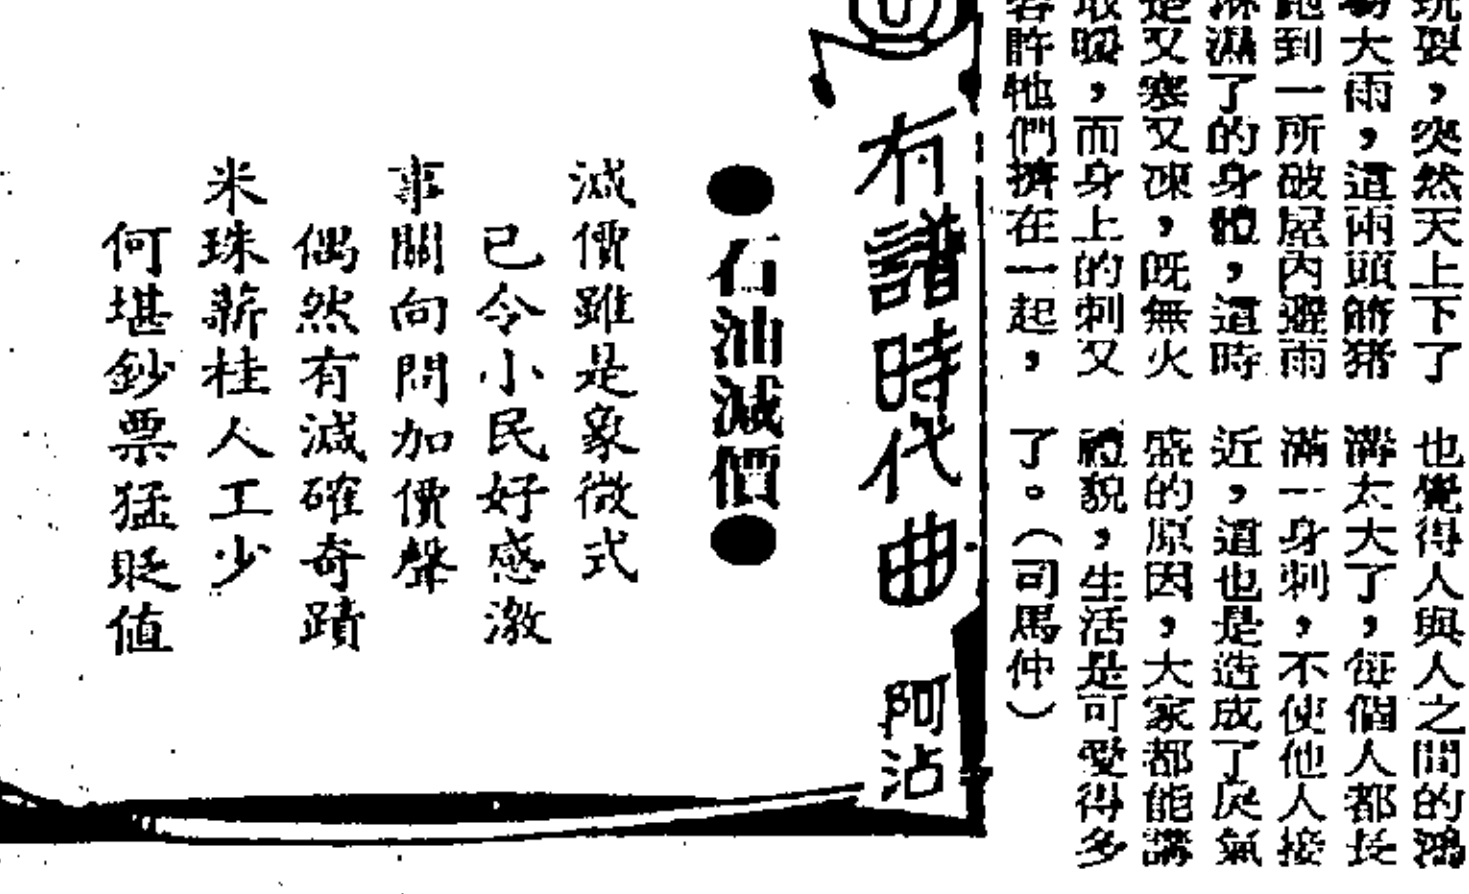 玩耍，突然天上下了
大雨，這兩頭箭猪
跑到一所破屋內避雨
淋濕了的身體，這時
是又寒又凍，既無火
取暖，而身上的刺又
容許牠們擠在一起，
也覺得人與人之間的鴻
溝太大了，每個人都長
滿一身刺，不使他人接
近，這也是造成了戾氣
盛的原因，大家都能講
禮貌，生活是可愛得多
了。（司馬仲）
有譜時代曲
阿沾
●石油減價●
減價雖是象徵式
已令小民好感激
事關向問加價聲
偶然有減確奇蹟
米珠薪桂人工少
何堪鈔票猛貶値